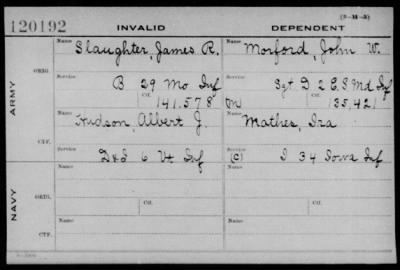 (3-14-3)
120192 INVALID DEPENDENT
Name Slaughter, James R. Name Morford, John W.
ORIG.
Service B 29 Mo Inf Service Sgt. D 2 E.S Md Inf
Ctf. 141.578 (M) Ctf. 35.421
ARMY
Name Hudson, Albert J. Name Mathes, Ira
CTF.
Service D&I 6 Vt Inf Service (C) I 34 Iowa Inf
Name Ctf. Name Ctf.
ORIG.
NAVY
Name Name
CTF.